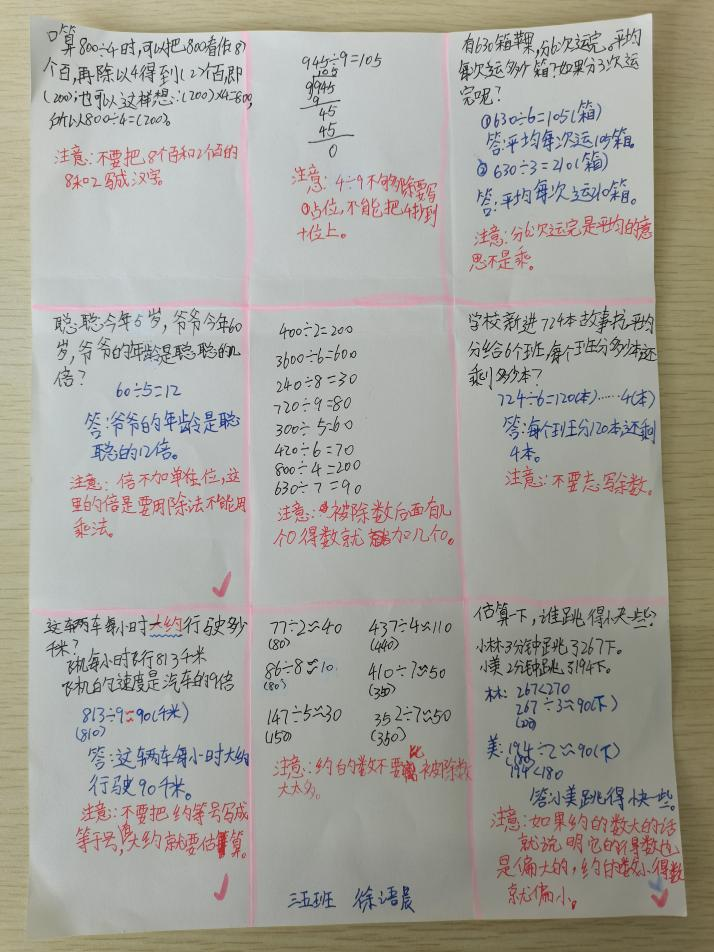 口算800÷4时,可以把800看作(8)
个百,再除以4得到(2)个百,即
(200);也可以这样想:(200)×4=800,
所以800÷4=(200)。
注意:不要把8个百和2个百的
8和2写成汉字。
945÷9=105
105
9945
9
45
45
0
注意:4÷9不够除要写
0占位,不能把4抄到
十位上。
有630箱苹果,分6次运完。平均
每次运多少个箱?如果分3次运
完呢?
①630÷6=105(箱)
答:平均每次运105箱。
②630÷3=210(箱)
答:平均每次运210箱。
注意:分6次运完是平均的意
思不是乘。
聪聪今年5岁,爷爷今年60
岁,爷爷的年龄是聪聪的几
倍?
60÷5=12
答:爷爷的年龄是聪
聪的12倍。
注意:倍不加单位,这
里的倍是要用除法不能用
乘法。
400÷2=200
3600÷6=600
240÷8=30
720÷9=80
300÷5=60
420÷6=70
800÷4=200
630÷7=90
注意:被除数后面有几
个0得数就加几个0。
学校新进724本故事书,平均
分给6个班,每个班分多少本还
剩多少本?
724÷6=120(本)……4(本)
答:每个班分120本,还剩
4本。
注意:不要忘写余数。
这辆车每小时大约行驶多少
千米?
飞机每小时飞行813千米
飞机的速度是汽车的9倍
813÷9≈90(千米)
(810)
答:这辆车每小时大约
行驶90千米。
注意:不要把约等号写成
等于号,大约就要估算。
77÷2≈40
(80)
86÷8≈10
(80)
147÷5≈30
(150)
437÷4≈110
(440)
410÷7≈50
(350)
352÷7≈50
(350)
注意:约的数不要比被除数
大太多。
估算一下,谁跳得快一些?
小林3分钟跳了267下。
小美2分钟跳了194下。
林:267<270
267÷3≈90(下)
美:194÷2≈90(下)
(180)
194<180
答:小美跳得快一些。
注意:如果约的数大的话
就说明它的得数也
是偏大的,约的数小得数
就偏小。
三五班 徐语晨